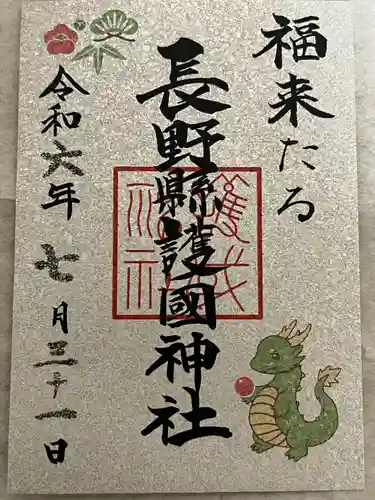 福来たる
長野縣護國神社
令和六年 七月三十一日